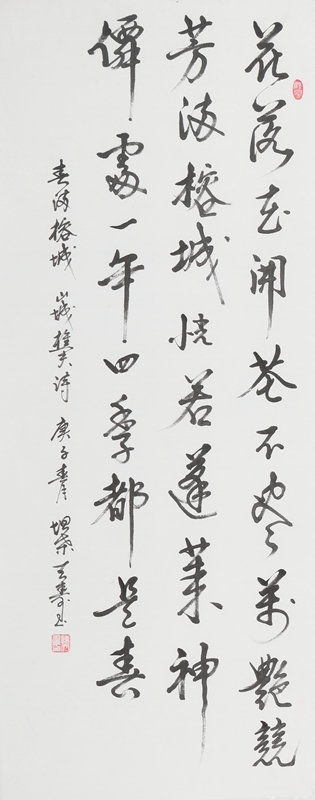 花落花開花不盡萬艷競
芳滿榕城恍若蓬萊神
僊處一年四季都是春
春滿榕城 樵夫詩 庚子春月 書